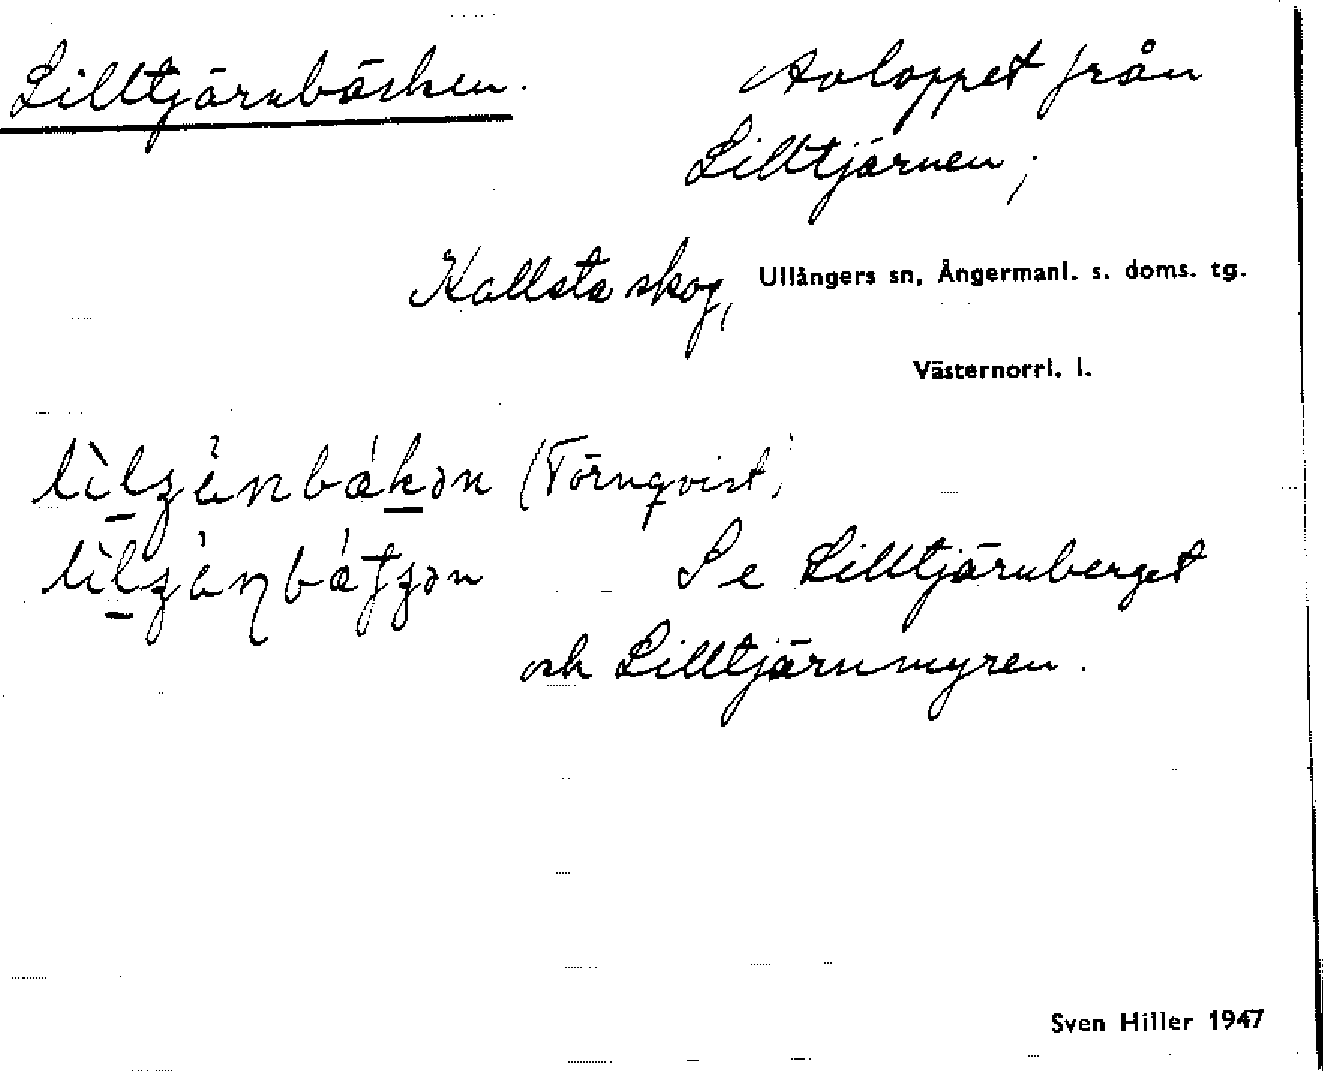 Lilltjärnbäcken. Avloppet från
Lilltjärnen;
Kallsta skog, Ullångers sn, Ångermanl. s. doms. tg.
Västernorrl. l.
(Törnqvist)
Se Lilltjärnberget
och Lilltjärnmyren.
Sven Hiller 1947